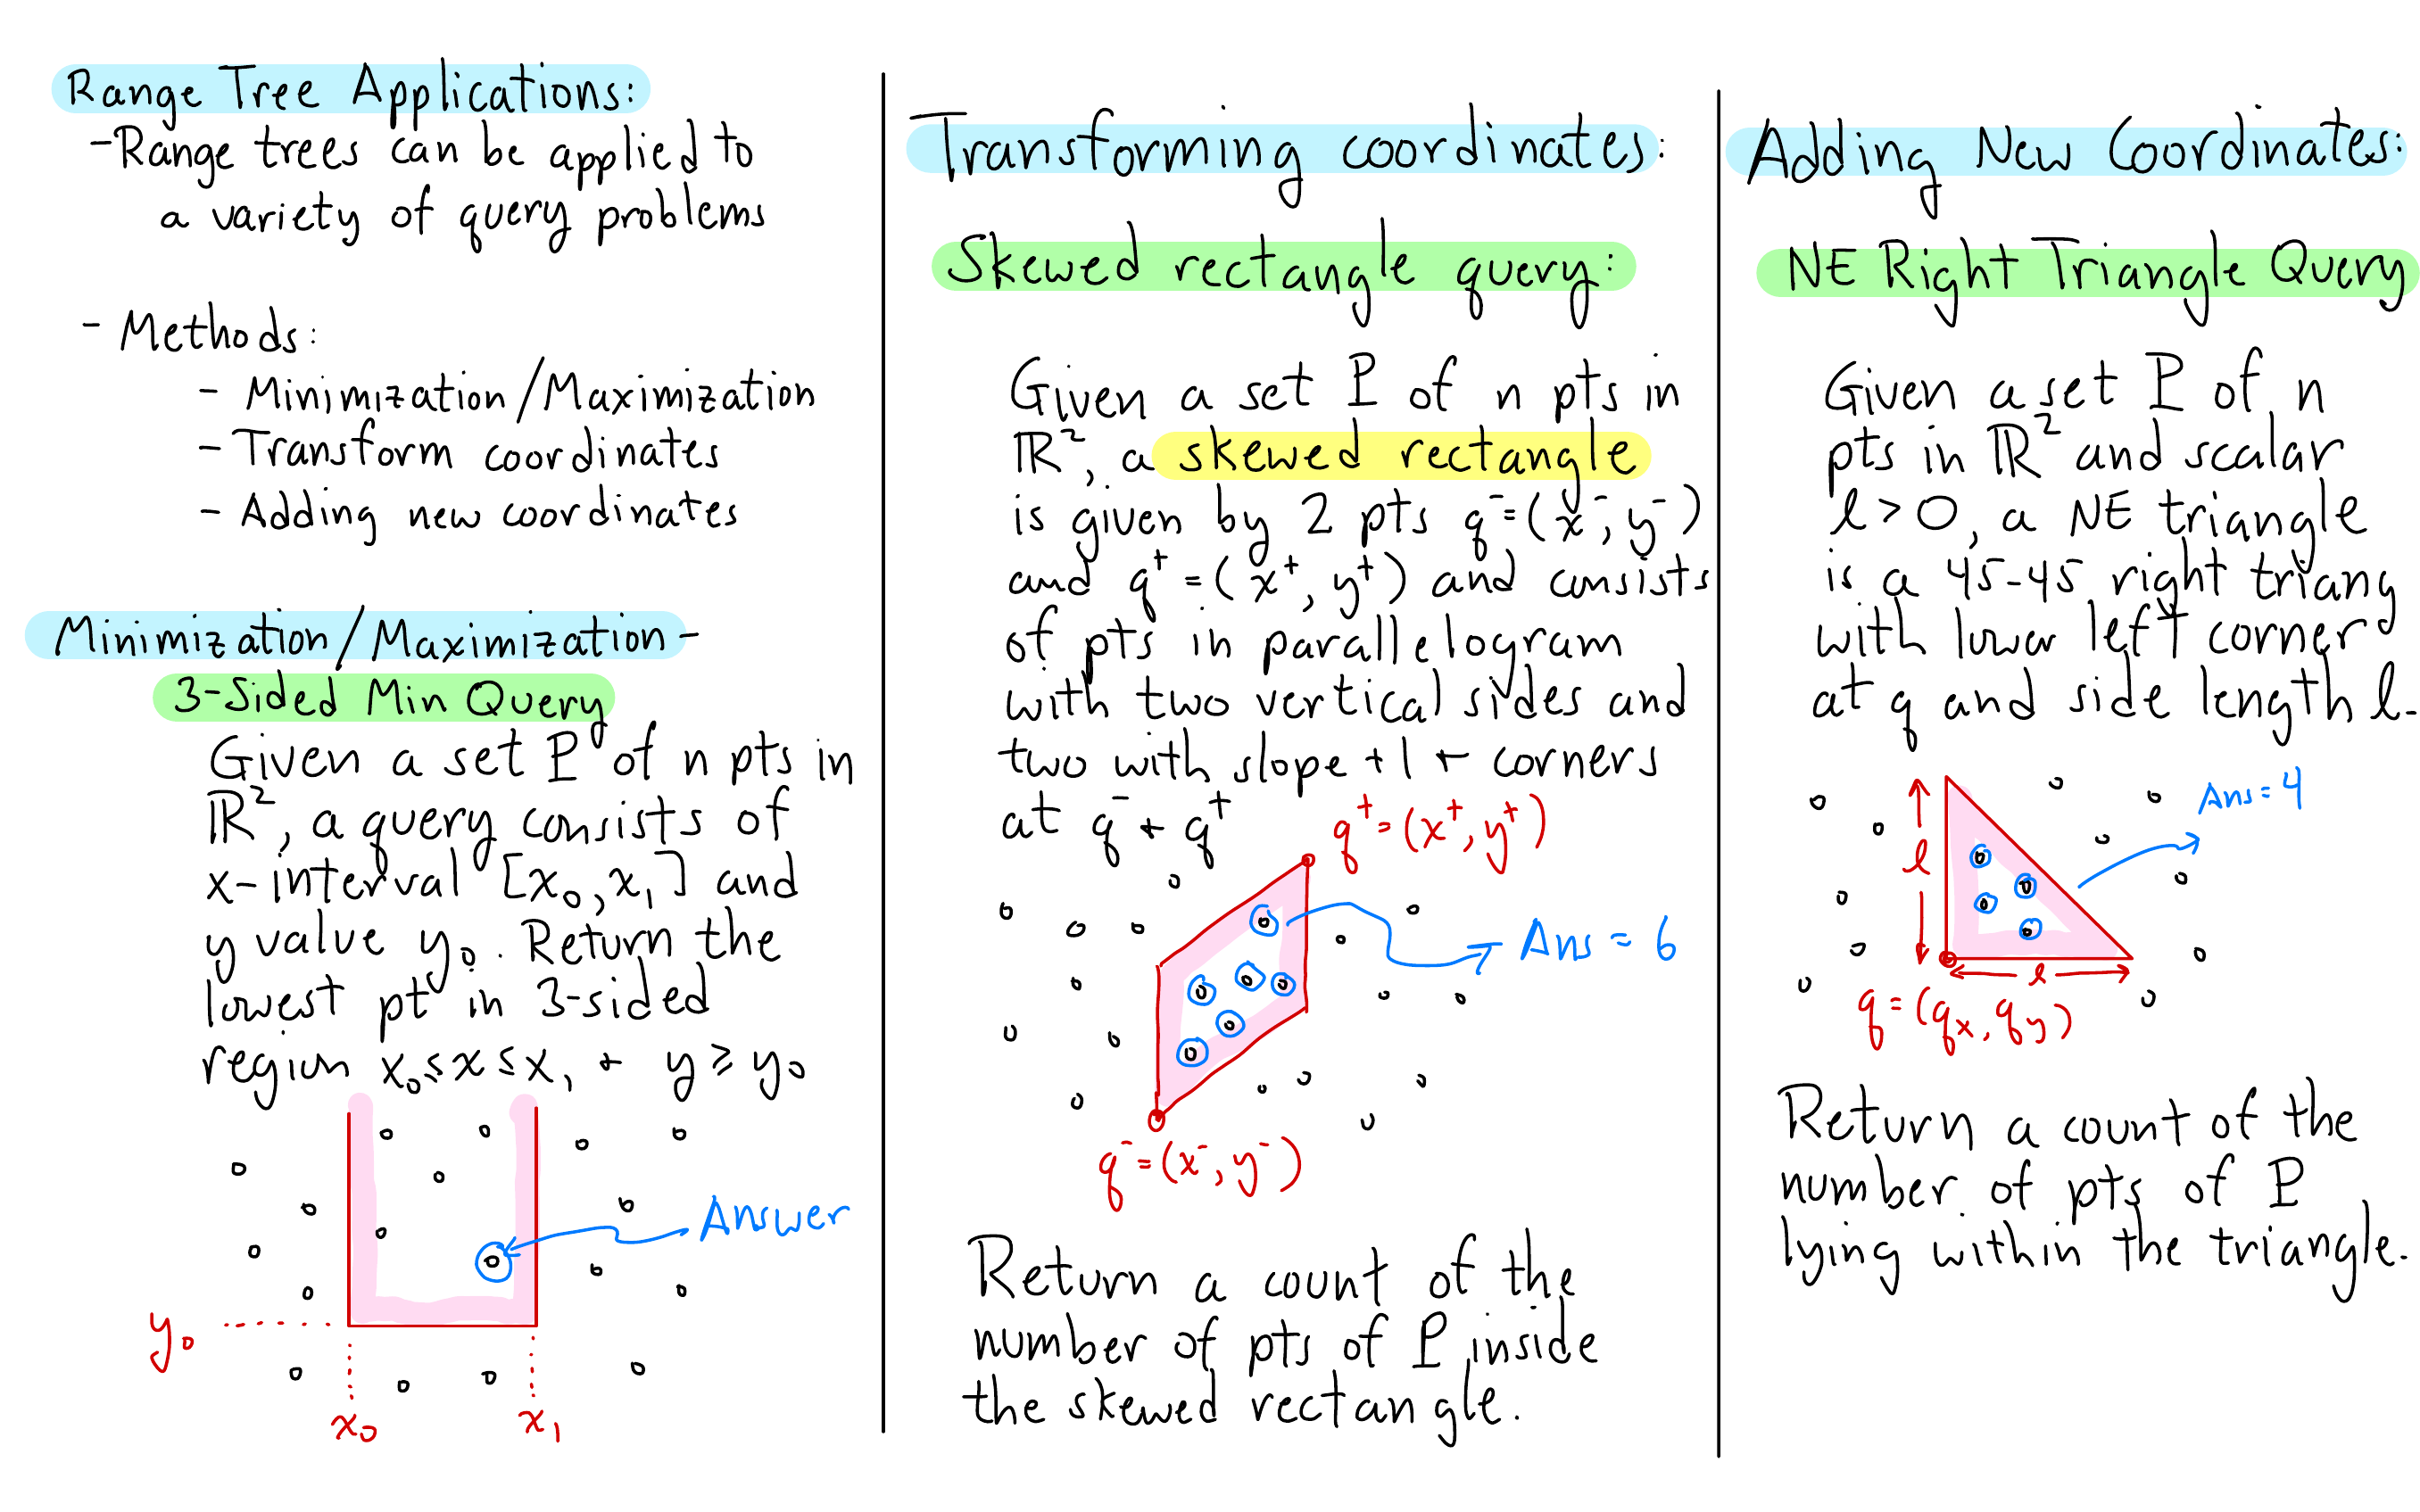 Range Tree Applications:
- Range trees can be applied to
a variety of query problems
- Methods:
- Minimization/Maximization
- Transform coordinates
- Adding new coordinates
Minimization/Maximization -
3-Sided Min Query
Given a set P of n pts in
ℝ², a query consists of
x-interval [x₀, x₁] and
y value y₀. Return the
lowest pt in 3-sided
region x₀ ≤ x ≤ x₁ + y ≥ y₀
Answer
y₀
x₀
x₁
Transforming coordinates:
Skewed rectangle query:
Given a set P of n pts in
ℝ², a skewed rectangle
is given by 2 pts q⁻=(x⁻, y⁻)
and q⁺=(x⁺, y⁺) and consists
of pts in parallelogram
with two vertical sides and
two with slope +1 + corners
at q⁻ + q⁺
q⁺=(x⁺, y⁺)
Ans = 6
q⁻=(x⁻, y⁻)
Return a count of the
number of pts of P inside
the skewed rectangle.
Adding New Coordinates:
NE Right Triangle Query
Given a set P of n
pts in ℝ² and scalar
l > 0, a NE triangle
is a 45-45 right triang
with lower left corner
at q and side length l.
Ans = 4
l
l
q=(qₓ, q_y)
Return a count of the
number of pts of P
lying within the triangle.